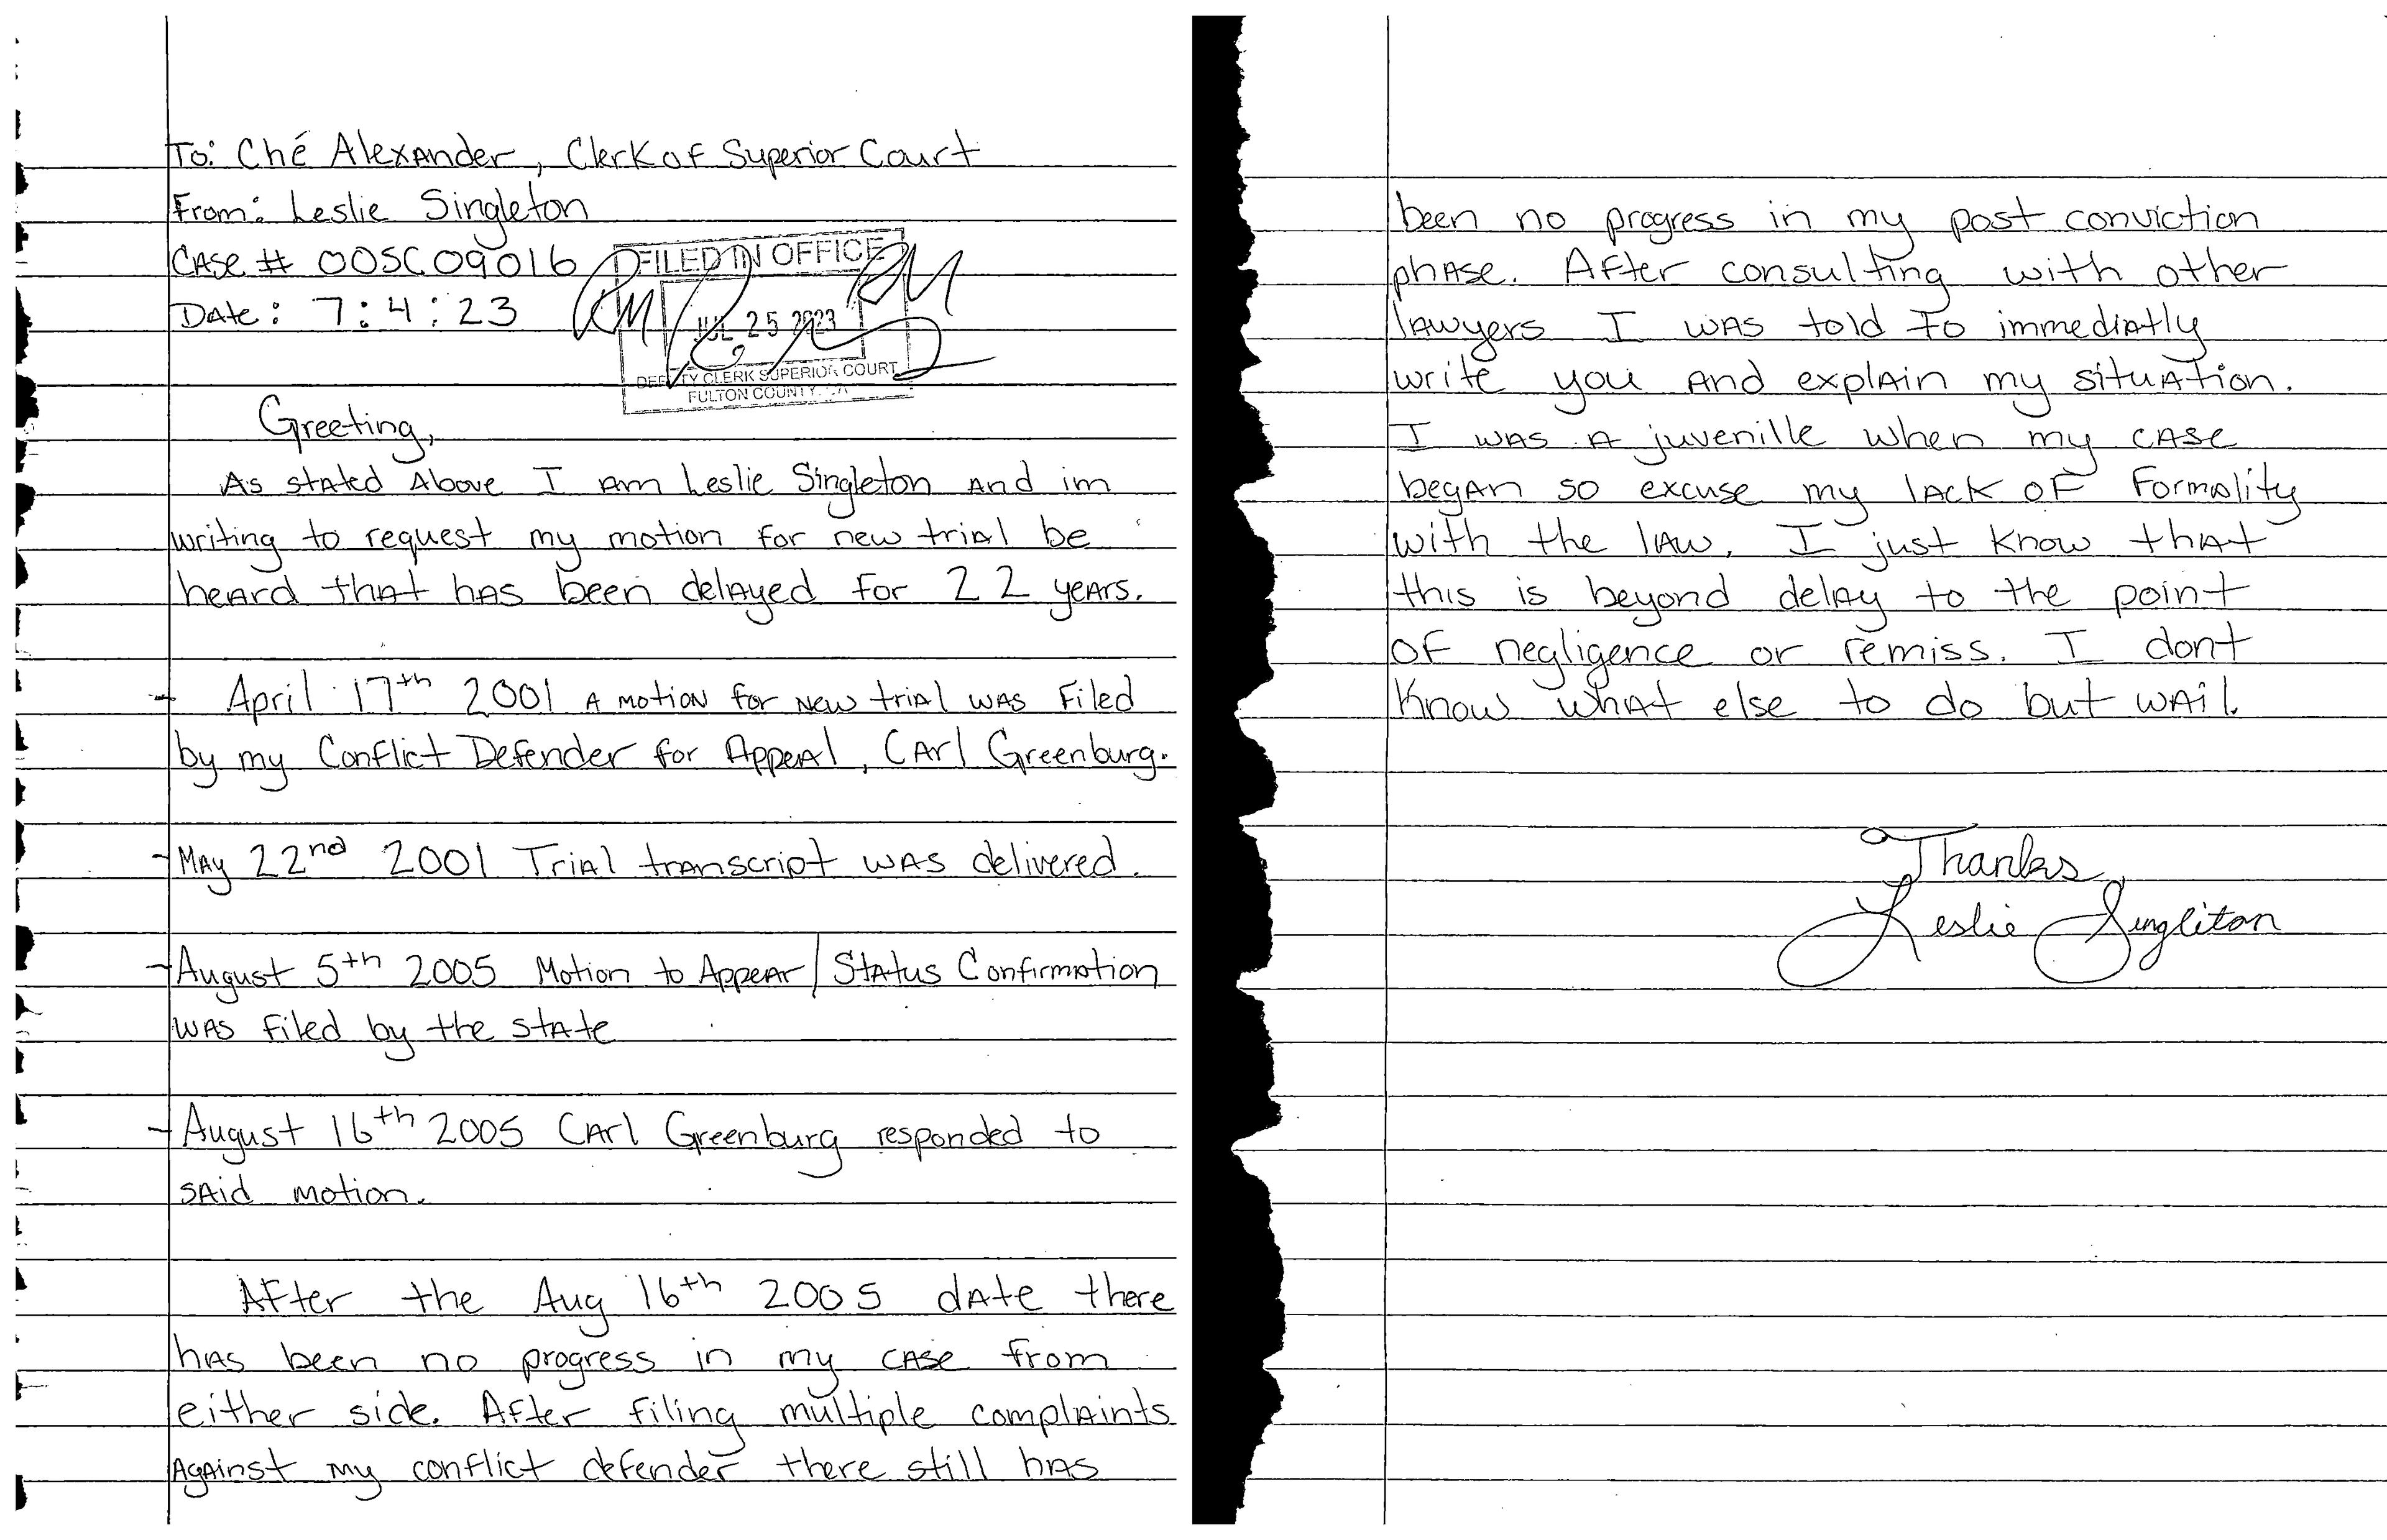 To: Ché Alexander, Clerk of Superior Court
From: Leslie Singleton
Case # 00SC09016
Date: 7:4:23
FILED IN OFFICE
JUL 25 2023
DEPUTY CLERK SUPERIOR COURT
FULTON COUNTY, GA
Greeting,
As stated Above I am Leslie Singleton and im
writing to request my motion for new trial be
heard that has been delayed for 22 years.
- April 17th 2001 A motion for new trial was Filed
by my Conflict Defender for Appeal, Carl Greenburg.
- May 22nd 2001 Trial transcript was delivered.
- August 5th 2005 Motion to Appear/Status Confirmation
was filed by the state
- August 16th 2005 Carl Greenburg responded to
said motion.
After the Aug 16th 2005 date there
has been no progress in my case from
either side. After filing multiple complaints
Against my conflict defender there still has
been no progress in my post conviction
phase. After consulting with other
lawyers I was told to immediatly
write you and explain my situation.
I was a juvenille when my case
began so excuse my lack of Formality
with the law. I just know that
this is beyond delay to the point
of negligence or remiss. I dont
know what else to do but wail.
Thanks,
Leslie Singleton